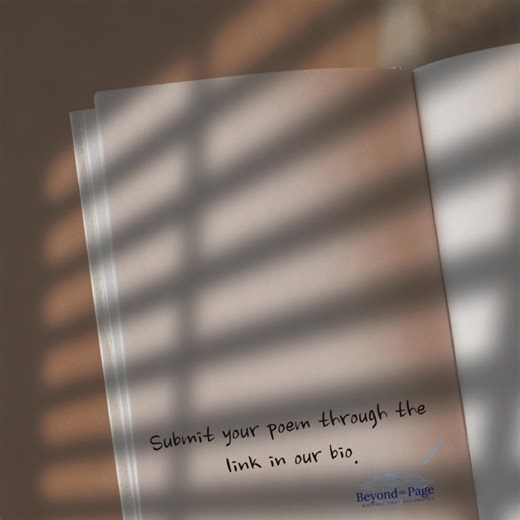 Submit your poem through the
link in our bio.
Beyond the Page
WRITING THAT RESONATES